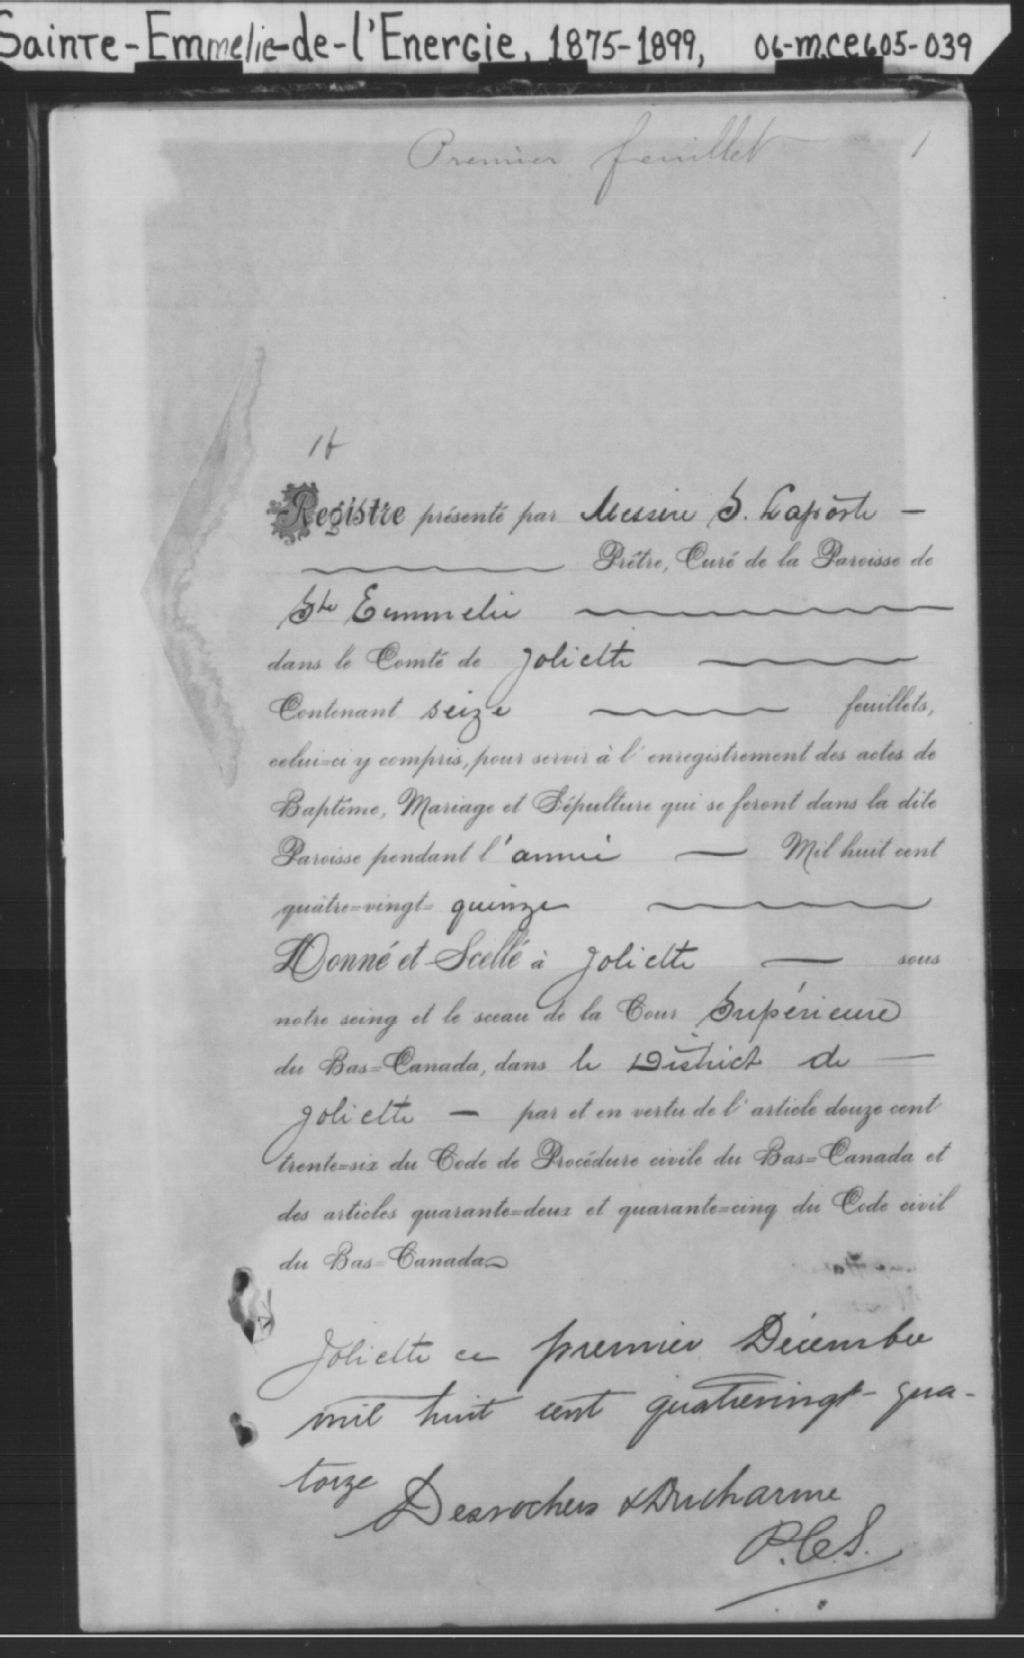 Sainte-Emmelie-de-l'Energie, 1875-1899, 06-M.CE605-039
Premier feuillet 1
Registre présenté par Messire S. Laporte —
Prêtre, Curé de la Paroisse de
Ste Emmelie
dans le Comté de Joliette
Contenant seize feuillets,
celui=ci y compris, pour servir à l'enregistrement des actes de
Baptême, Mariage et Sépulture qui se feront dans la dite
Paroisse pendant l'année — Mil huit cent
quatre=vingt= quinze
Donné et Scellé à Joliette — sous
notre seing et le sceau de la Cour Supérieure
du Bas=Canada, dans le District de —
Joliette — par et en vertu de l'article douze cent
trente=six du Code de Procédure civile du Bas=Canada et
des articles quarante=deux et quarante=cinq du Code civil
du Bas=Canada
Joliette ce premier Décembre
mil huit cent quatrevingt-qua-
torze
Desrochers & Ducharme
P.C.S.